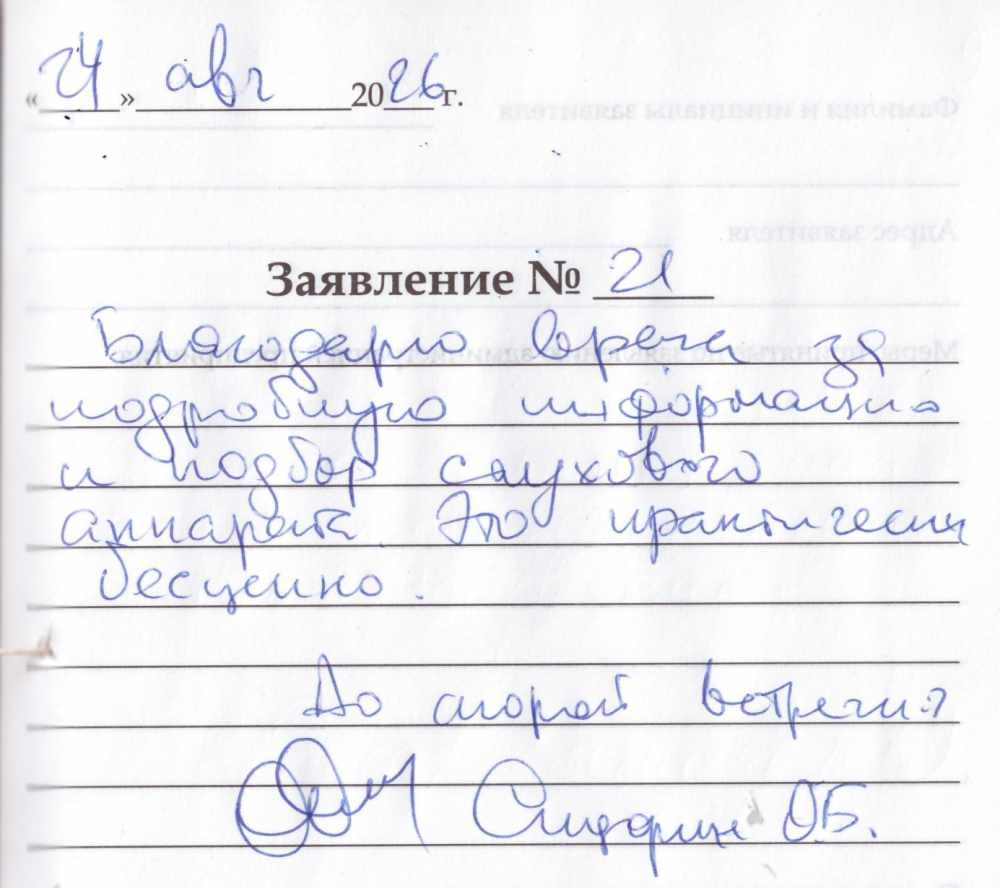 «24» авг 2026 г.
Фамилия и инициалы заявителя
Адрес заявителя
Заявление № 21
Благодарю врача за
подробную информацию
и подбор слухового
аппарата. Это практически
бесценно.
До скорой встречи!
О.Б.